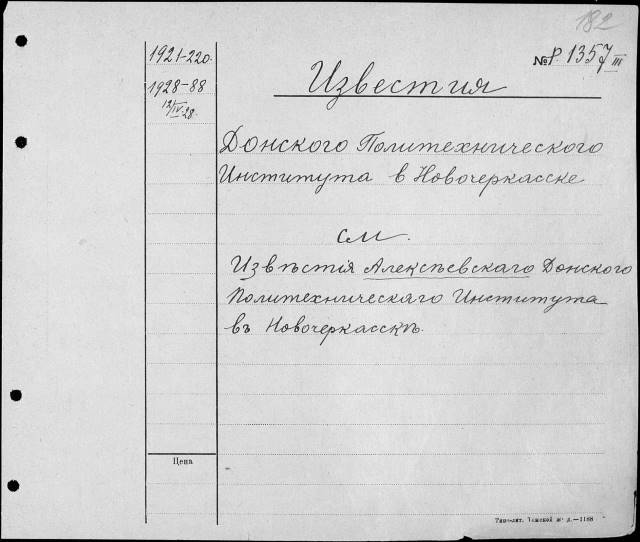 182
1921-220.
1928-88
12/IV 28.
№ P. 1357 III
Известия
Донского Политехнического
Института в Новочеркасске
см.
Извѣстія Алексѣевскаго Донского
Политехническаго Института
въ Новочеркасскѣ.
Цена
Типо-лит. Томской ж. д.—1188